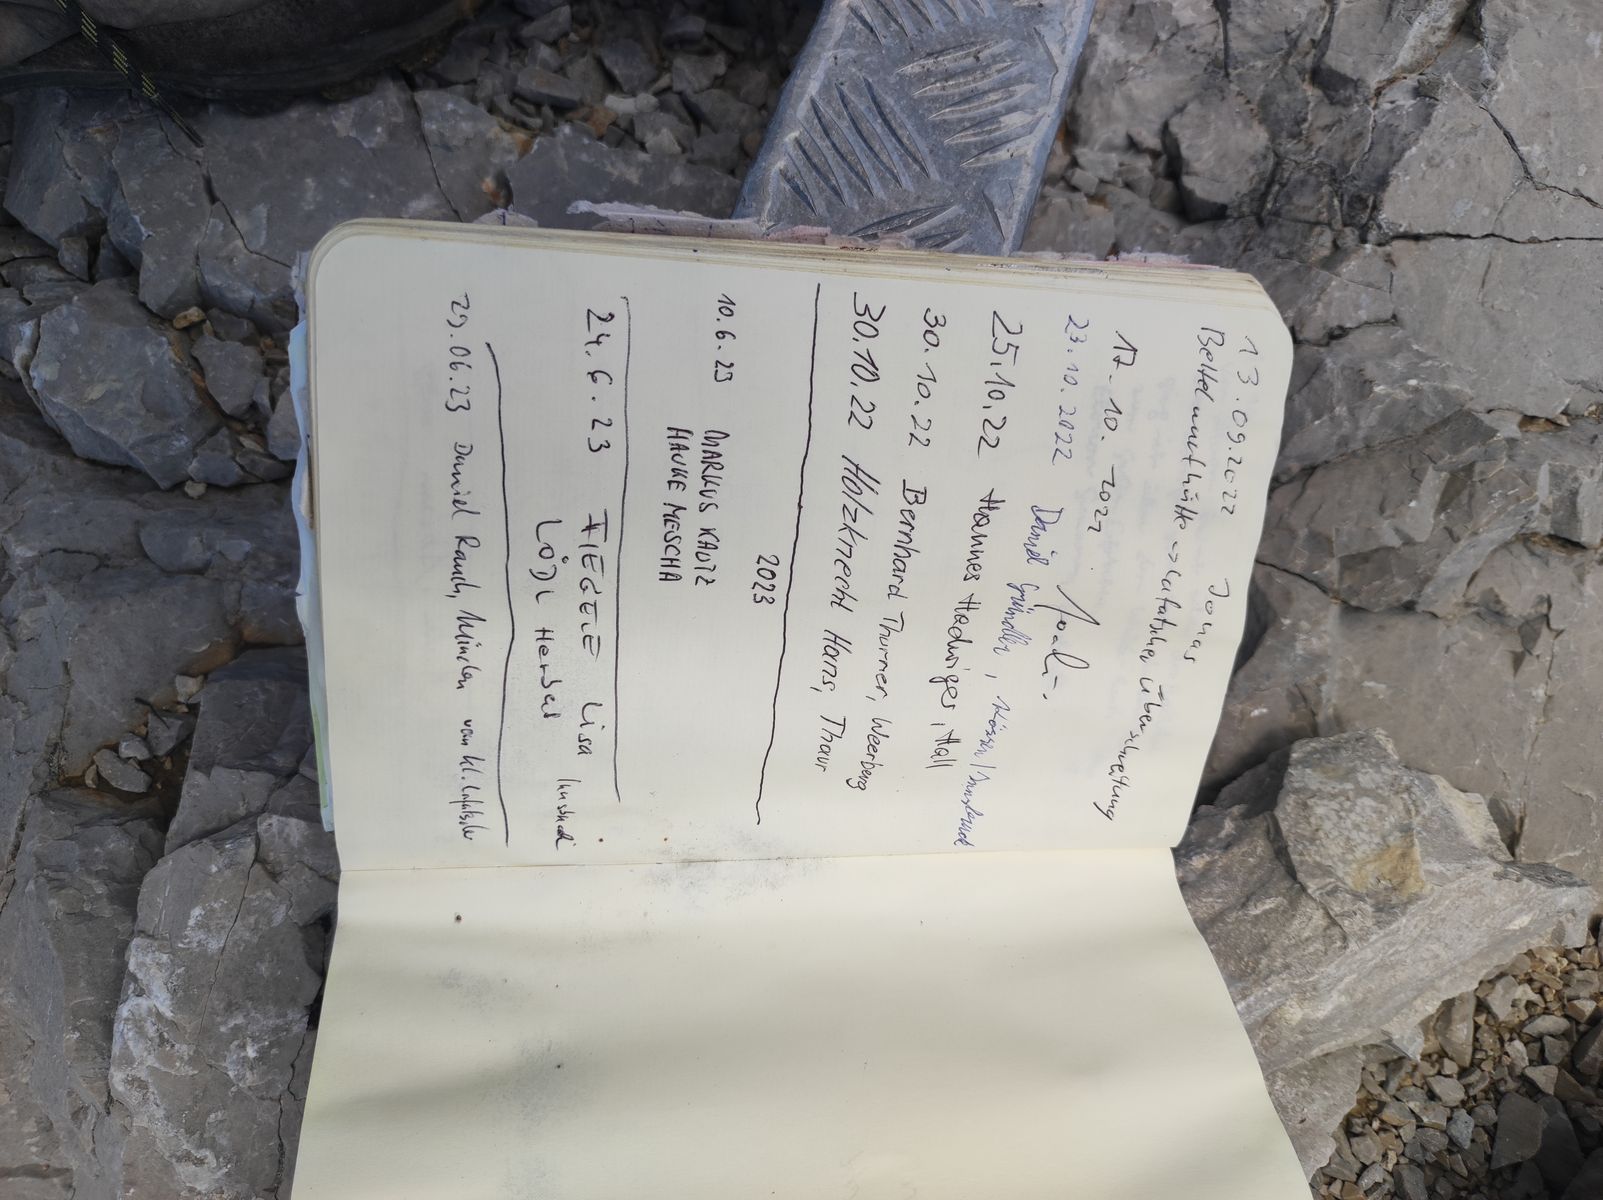 13.09.2022 Jonas
Bettelwurfhütte -> Lafatscher Überschreitung
17. 10. 2022
23.10.2022 Daniel Gründler, Kössen/Innsbruck
25.10.22 Hannes Hadwiger, Hall
30.10.22 Bernhard Thurner, Weerberg
30.10.22 Holzknecht Hans, Thaur
2023
10.6.23 MARKUS KAUTZ
HAUKE MESCHA
24.6.23 FIEGELE Lisa
LÖDL Herbert
29.06.23 Daniel Rauch, München von kl. Lafatscher